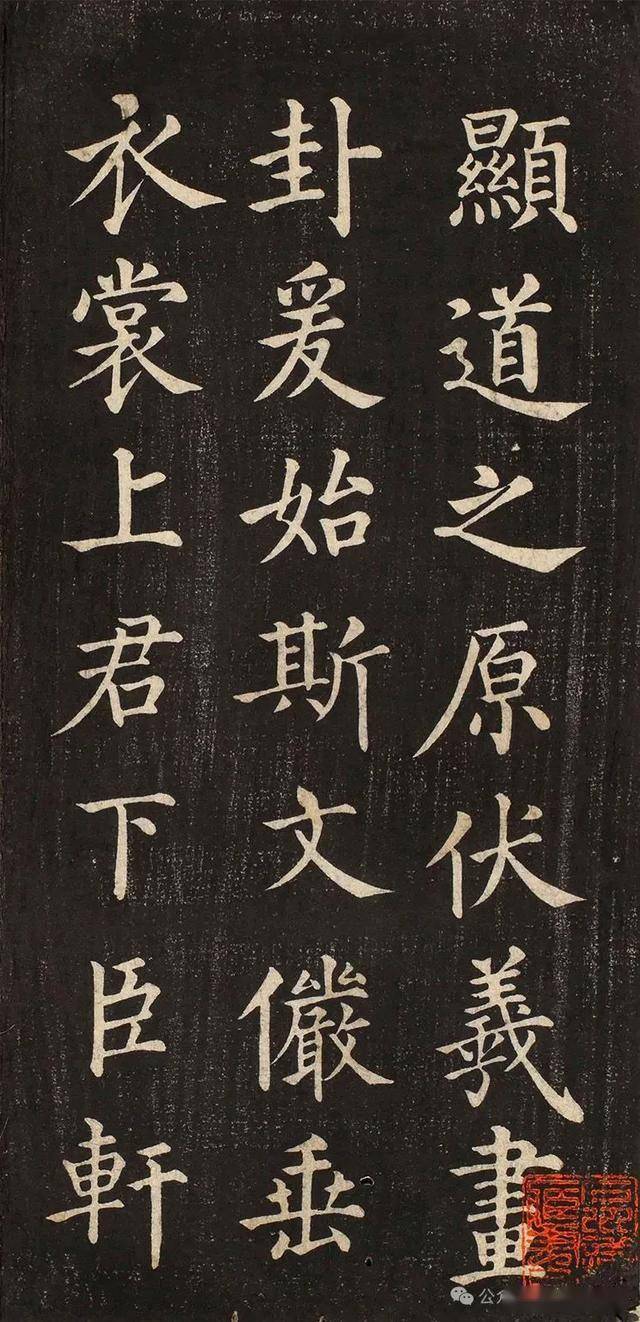 顯道之原伏羲畫
卦爰始斯文儼垂
衣裳上君下臣軒
公众